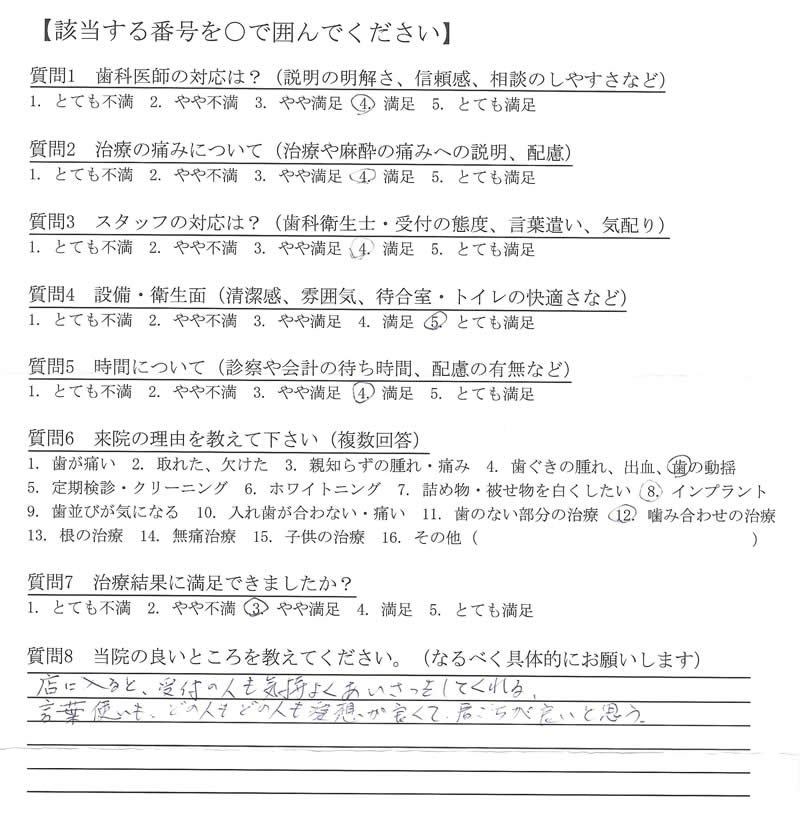 【該当する番号を○で囲んでください】
質問1　歯科医師の対応は？（説明の明解さ、信頼感、相談のしやすさなど）
1. とても不満　2. やや不満　3. やや満足　4. 満足　5. とても満足
質問2　治療の痛みについて（治療や麻酔の痛みへの説明、配慮）
1. とても不満　2. やや不満　3. やや満足　4. 満足　5. とても満足
質問3　スタッフの対応は？（歯科衛生士・受付の態度、言葉遣い、気配り）
1. とても不満　2. やや不満　3. やや満足　4. 満足　5. とても満足
質問4　設備・衛生面（清潔感、雰囲気、待合室・トイレの快適さなど）
1. とても不満　2. やや不満　3. やや満足　4. 満足　5. とても満足
質問5　時間について（診察や会計の待ち時間、配慮の有無など）
1. とても不満　2. やや不満　3. やや満足　4. 満足　5. とても満足
質問6　来院の理由を教えて下さい（複数回答）
1. 歯が痛い　2. 取れた、欠けた　3. 親知らずの腫れ・痛み　4. 歯ぐきの腫れ、出血、歯の動揺
5. 定期検診・クリーニング　6. ホワイトニング　7. 詰め物・被せ物を白くしたい　8. インプラント
9. 歯並びが気になる　10. 入れ歯が合わない・痛い　11. 歯のない部分の治療　12. 噛み合わせの治療
13. 根の治療　14. 無痛治療　15. 子供の治療　16. その他（　　　）
質問7　治療結果に満足できましたか？
1. とても不満　2. やや不満　3. やや満足　4. 満足　5. とても満足
質問8　当院の良いところを教えてください。（なるべく具体的にお願いします）
店に入ると、受付の人も気持よくあいさつをしてくれる。
言葉使いも、どの人もどの人も愛想が良くて、居ごこちが良いと思う。